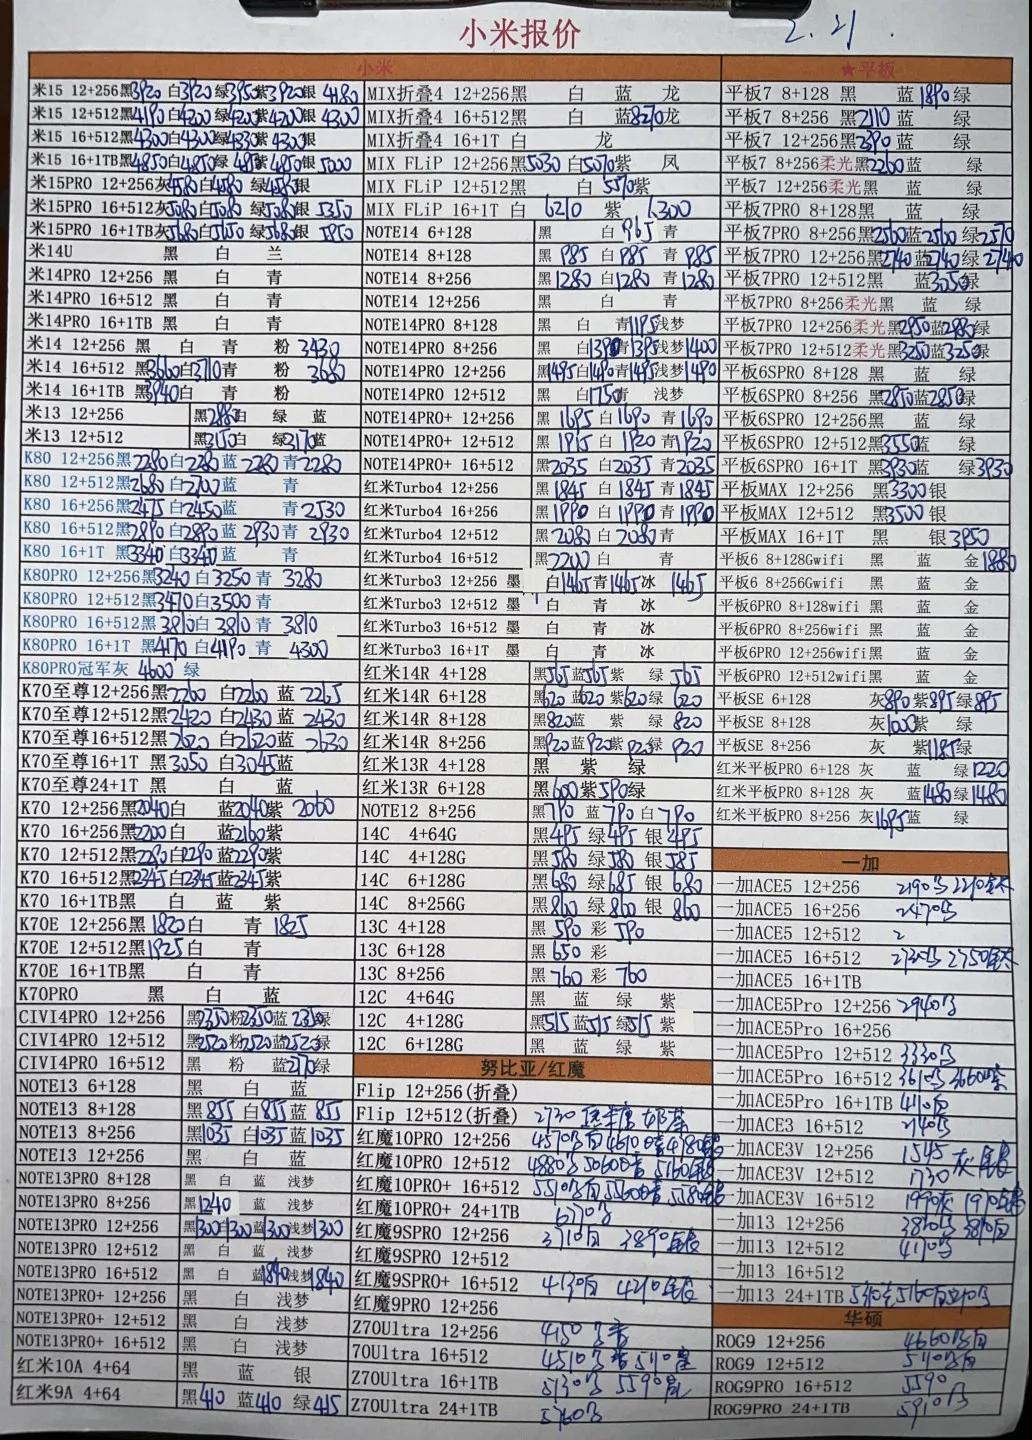 小米报价
2.21.
小米
米15 12+256黑3920 白3920 绿3950紫3920银 4180
米15 12+512黑4190白4200绿4200紫4200银 4300
米15 16+512黑4300白4300绿4330紫4300银
米15 16+1TB黑4850白4850绿 紫4850银 5000
米15PRO 12+256灰4580白4580 绿4580银
米15PRO 16+512灰5080白5080 绿5080银 5350
米15PRO 16+1TB灰5680白5650 绿5680银 5950
米14U 黑 白 兰
米14PRO 12+256 黑 白 青
米14PRO 16+512 黑 白 青
米14PRO 16+1TB 黑 白 青
米14 12+256 黑 白 青 粉 3430
米14 16+512 黑3660白3710青 粉 3680
米14 16+1TB 黑3940白 青 粉
米13 12+256 黑2880白 绿 蓝
米13 12+512 黑3150白 绿3170蓝
K80 12+256黑2280白2280蓝 2280 青2280
K80 12+512黑2680 白2700蓝 青
K80 16+256黑2475 白2450蓝 青2530
K80 16+512黑2890 白2890 蓝 2930 青 2930
K80 16+1T 黑3340白3340蓝 青
K80PRO 12+256黑3240 白3250 青 3280
K80PRO 12+512黑3470白3500 青
K80PRO 16+512黑3810白 3810 青 3810
K80PRO 16+1T 黑4170 白4190 青 4300
K80PRO冠军灰 4600 绿
K70至尊12+256黑2260 白2260 蓝 2265
K70至尊12+512黑2420 白2430 蓝 2430
K70至尊16+512黑2620 白2620蓝 2630
K70至尊16+1T 黑3050 白3045蓝
K70至尊24+1T 黑 白 蓝
K70 12+256黑2040白 蓝2040紫 2060
K70 16+256黑2200白 蓝2160紫
K70 12+512黑2290白2290蓝2290紫
K70 16+512黑2345白2345蓝2345紫
K70 16+1TB黑 白 蓝 紫
K70E 12+256黑1820白 青 1825
K70E 12+512黑1925白 青
K70E 16+1TB黑 白 青
K70PRO 黑 白 蓝
CIVI4PRO 12+256 黑2350粉2350蓝2350绿
CIVI4PRO 12+512 黑2520粉2520蓝2520绿
CIVI4PRO 16+512 黑 粉 蓝2770绿
NOTE13 6+128 黑 白 蓝
NOTE13 8+128 黑855 白855 蓝 855
NOTE13 8+256 黑1035 白1035 蓝1035
NOTE13 12+256 黑 白 蓝
NOTE13PRO 8+128 黑 白 蓝 浅梦
NOTE13PRO 8+256 黑1240 蓝 浅梦
NOTE13PRO 12+256 黑1300白1300蓝1300浅梦1300
NOTE13PRO+ 12+512 黑 白 蓝 浅梦
NOTE13PRO 16+512 黑 白 蓝1840浅梦1840
NOTE13PRO+ 12+256 黑 白 浅梦
NOTE13PRO+ 12+512 黑 白 浅梦
NOTE13PRO+ 16+512 黑 白 浅梦
红米10A 4+64 黑 蓝 银
红米9A 4+64 黑410 蓝410 绿 415
MIX折叠4 12+256黑 白 蓝 龙
MIX折叠4 16+512黑 白 蓝8270龙
MIX折叠4 16+1T 白 龙
MIX FLiP 12+256黑5030 白5070紫 凤
MIX FLiP 12+512黑 白 5570紫
MIX FLiP 16+1T 白 6210 紫 6300
NOTE14 6+128 黑 白 965 青
NOTE14 8+128 黑 985 白 985 青 985
NOTE14 8+256 黑1280 白1280 青1280
NOTE14 12+256 黑 白 青
NOTE14PRO 8+128 黑 白 青1195浅梦
NOTE14PRO 8+256 黑 白1390青1395浅梦1400
NOTE14PRO 12+256 黑1495白1490青1495浅梦1490
NOTE14PRO 12+512 黑 白1750青 浅梦
NOTE14PRO+ 12+256 黑 1695 白 1690 青 1690
NOTE14PRO+ 12+512 黑 1915 白 1920 青1920
NOTE14PRO+ 16+512 黑2035 白2035 青 2035
红米Turbo4 12+256 黑 1845 白 1845 青 1845
红米Turbo4 16+256 黑1990 白1990 青 1990
红米Turbo4 12+512 黑2080 白2080青
红米Turbo4 16+512 黑2200 白 青
红米Turbo3 12+256 墨 白1465青1465冰 1465
红米Turbo3 12+512 墨 白 青 冰
红米Turbo3 16+512 墨 白 青 冰
红米Turbo3 16+1T 墨 白 青 冰
红米14R 4+128 黑565蓝565紫 绿 565
红米14R 6+128 黑620 蓝620 紫620绿 620
红米14R 8+128 黑820蓝 紫 绿 820
红米14R 8+256 黑920 蓝920紫920绿 920
红米13R 4+128 黑 紫 绿
红米13R 6+128 黑600紫590绿
NOTE12 8+256 黑790 蓝 790 白 790
14C 4+64G 黑495 绿495 银 495
14C 4+128G 黑580 绿580 银 585
14C 6+128G 黑680 绿685 银 680
14C 8+256G 黑860 绿 860 银 860
13C 4+128 黑 590 彩 590
13C 6+128 黑 650 彩
13C 8+256 黑 760 彩 760
12C 4+64G 黑 蓝 绿 紫
12C 4+128G 黑515 蓝515 绿515 紫
12C 6+128G 黑 蓝 绿 紫
努比亚/红魔
Flip 12+256(折叠)
Flip 12+512(折叠) 2730
红魔10PRO 12+256
红魔10PRO 12+512
红魔10PRO+ 16+512
红魔10PRO+ 24+1TB
红魔9SPRO 12+256
红魔9SPRO 12+512
红魔9SPRO+ 16+512
红魔9PRO 12+256
Z70Ultra 12+256
70Ultra 16+512
Z70Ultra 16+1TB
Z70Ultra 24+1TB
★平板
平板7 8+128 黑 蓝 1890绿
平板7 8+256 黑2110 蓝 绿
平板7 12+256 黑2390 蓝 绿
平板7 8+256柔光黑2260蓝 绿
平板7 12+256柔光黑 蓝 绿
平板7PRO 8+128黑 蓝 绿
平板7PRO 8+256黑2560蓝2560 绿2570
平板7PRO 12+256黑2740蓝2740绿2740
平板7PRO 12+512黑 蓝3050绿
平板7PRO 8+256柔光黑 蓝 绿
平板7PRO 12+256柔光黑2950蓝2980绿
平板7PRO 12+512柔光黑3250蓝3250绿
平板6SPRO 8+128 黑 蓝 绿
平板6SPRO 8+256 黑2850蓝2850绿
平板6SPRO 12+256黑 蓝 绿
平板6SPRO 12+512黑3550蓝 绿
平板6SPRO 16+1T 黑3930蓝 绿3930
平板MAX 12+256 黑3300银
平板MAX 12+512 黑3500银
平板MAX 16+1T 黑 银3950
平板6 8+128Gwifi 黑 蓝 金1880
平板6 8+256Gwifi 黑 蓝 金
平板6PRO 8+128wifi 黑 蓝 金
平板6PRO 8+256wifi 黑 蓝 金
平板6PRO 12+256wifi黑 蓝 金
平板6PRO 12+512wifi黑 蓝 金
平板SE 6+128 灰890紫895绿895
平板SE 8+128 灰1000紫 绿
平板SE 8+256 灰 紫1185绿
红米平板PRO 6+128 灰 蓝 绿1220
红米平板PRO 8+128 灰 蓝1480绿1480
红米平板PRO 8+256 灰1695蓝 绿
一加
一加ACE5 12+256
一加ACE5 16+256
一加ACE5 12+512
一加ACE5 16+512
一加ACE5 16+1TB
一加ACE5Pro 12+256
一加ACE5Pro 16+256
一加ACE5Pro 12+512
一加ACE5Pro 16+512
一加ACE5Pro 16+1TB
一加ACE3 16+512
一加ACE3V 12+256 1545
一加ACE3V 12+512 1730
一加ACE3V 16+512
一加13 12+256
一加13 12+512
一加13 16+512
一加13 24+1TB
华硕
ROG9 12+256
ROG9 12+512
ROG9PRO 16+512 5590
ROG9PRO 24+1TB